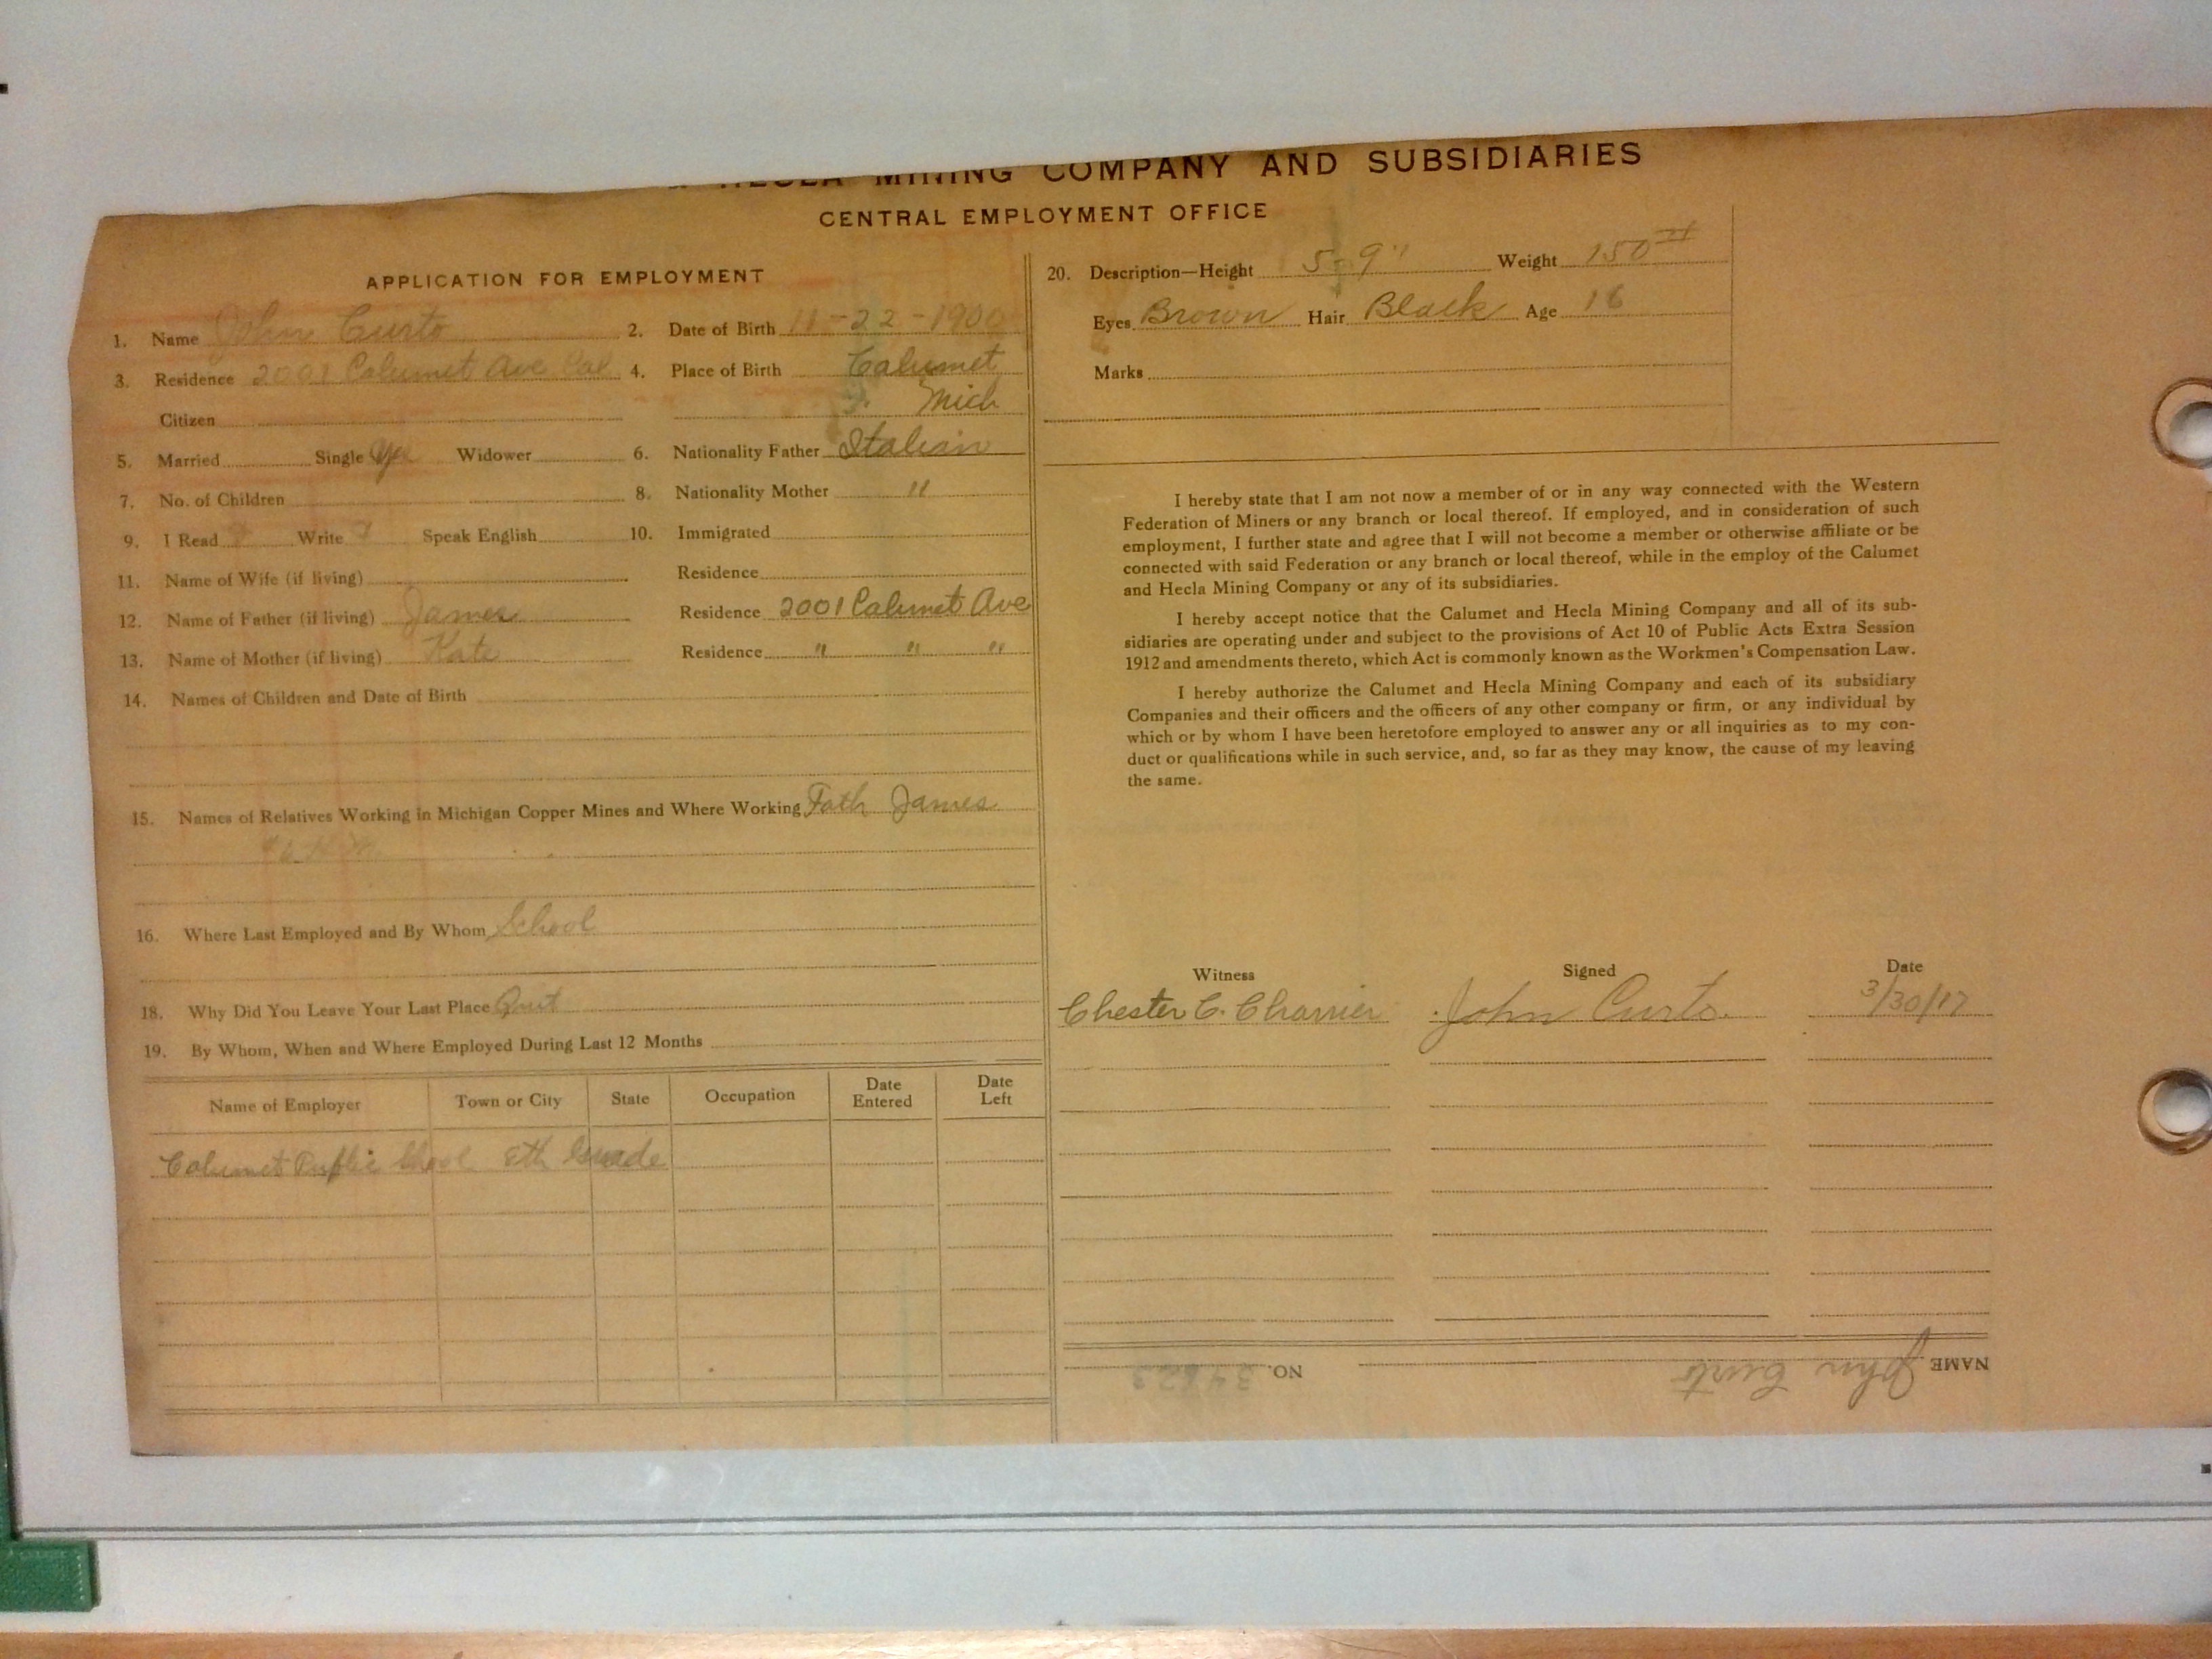 HECLA MINING COMPANY AND SUBSIDIARIES
CENTRAL EMPLOYMENT OFFICE
APPLICATION FOR EMPLOYMENT
1. Name John Curto 2. Date of Birth 11-22-1900
3. Residence 2001 Calumet Ave Cal 4. Place of Birth Calumet
Citizen Mich
5. Married Single Yes Widower 6. Nationality Father Italian
7. No. of Children 8. Nationality Mother "
9. I Read Write Speak English 10. Immigrated
11. Name of Wife (if living) Residence
12. Name of Father (if living) James Residence 2001 Calumet Ave
13. Name of Mother (if living) Kate Residence " " "
14. Names of Children and Date of Birth
15. Names of Relatives Working in Michigan Copper Mines and Where Working Fath James
16. Where Last Employed and By Whom School
18. Why Did You Leave Your Last Place Quit
19. By Whom, When and Where Employed During Last 12 Months
Name of Employer Town or City State Occupation Date Entered Date Left
Calumet Public School 8th Grade
20. Description—Height 5-9" Weight 150#
Eyes Brown Hair Black Age 16
Marks
I hereby state that I am not now a member of or in any way connected with the Western
Federation of Miners or any branch or local thereof. If employed, and in consideration of such
employment, I further state and agree that I will not become a member or otherwise affiliate or be
connected with said Federation or any branch or local thereof, while in the employ of the Calumet
and Hecla Mining Company or any of its subsidiaries.
I hereby accept notice that the Calumet and Hecla Mining Company and all of its sub-
sidiaries are operating under and subject to the provisions of Act 10 of Public Acts Extra Session
1912 and amendments thereto, which Act is commonly known as the Workmen's Compensation Law.
I hereby authorize the Calumet and Hecla Mining Company and each of its subsidiary
Companies and their officers and the officers of any other company or firm, or any individual by
which or by whom I have been heretofore employed to answer any or all inquiries as to my con-
duct or qualifications while in such service, and, so far as they may know, the cause of my leaving
the same.
Witness Signed Date
Chester C. Charrier John Curto. 3/30/17
NAME John Curto NO.